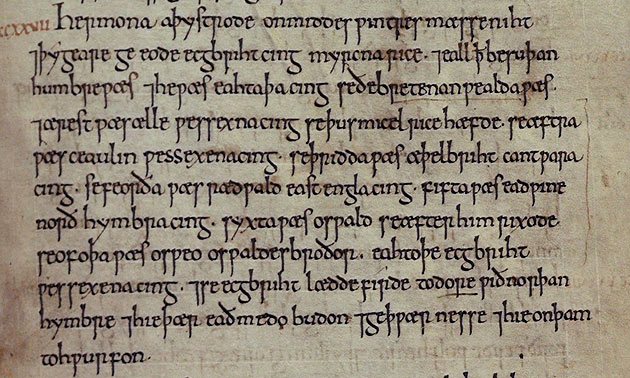 dcccxxvii Her mona aþystrode on middes ƿintres mæsse niht
⁊ þy geare ge eode ecgbriht cing myrcna rice · ⁊ eall ꝥ be suþan
humbre ƿæs · ⁊ he ƿæs eahtaþa cing se ðe bretenanƿealda ƿæs ·
⁊ ærest ƿæs ælle ƿessexna cing se þus micel rice hæfde · se æftra
ƿæs ceaulin ƿessexena cing · se þridda ƿæs æþelbriht cantƿara
cing · se feorða ƿæs rædƿald eastengla cing · fifta ƿæs eadƿine
norðhymbra cing · syxta ƿæs osƿald se æfter him rixode
seofoþa ƿæs osƿeo osƿaldes broðor · eahtoþe ecgbriht
ƿessexena cing · ⁊ se ecgbriht lædde firde to dore ƿið norþan
hymbre ⁊ hie þær eadmedo budon ⁊ geþƿærnesse ⁊ hie on þam
tohƿurfon ·